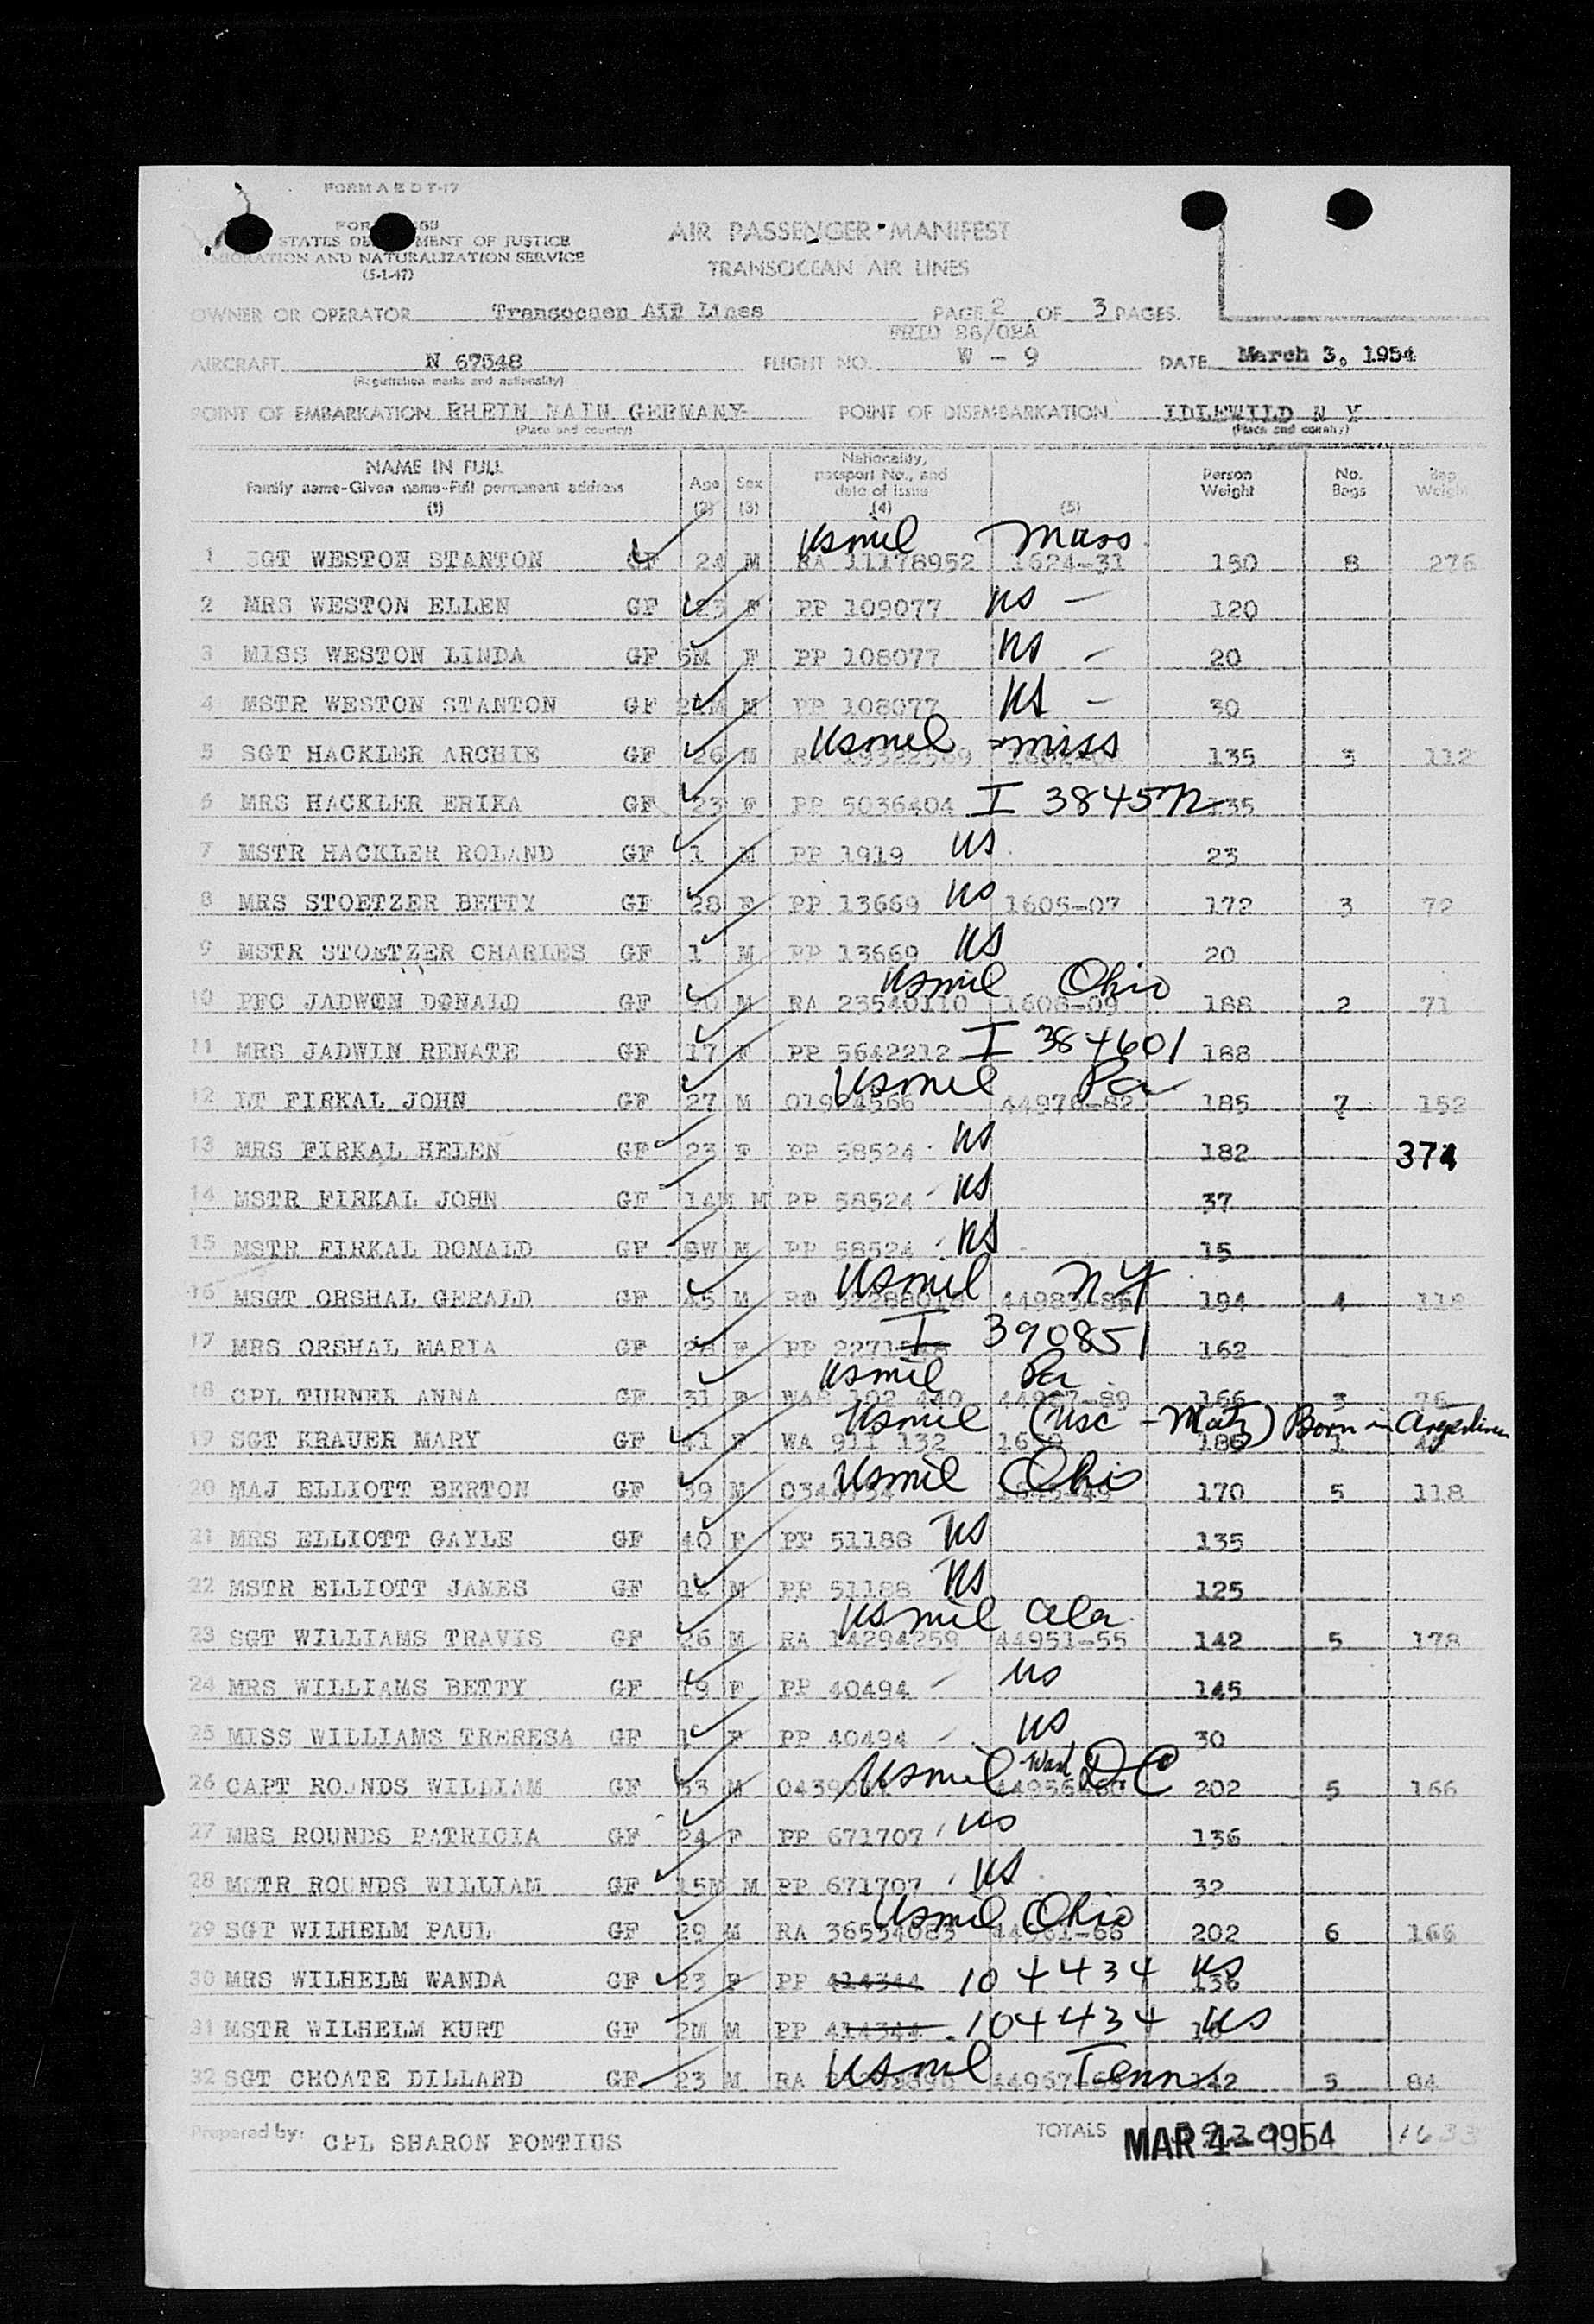 FORM A E D T-17
STATES DE MENT OF JUSTICE
IMMIGRATION AND NATURALIZATION SERVICE
(5-1-47)
AIR PASSENGER MANIFEST
TRANSOCEAN AIR LINES
OWNER OR OPERATOR Transocean Air Lines PAGE 2 OF 3 PAGES.
PRID 26/02A
AIRCRAFT N 67548 FLIGHT NO. W - 9 DATE March 3, 1954
(Registration marks and nationality)
POINT OF EMBARKATION RHEIN MAIN GERMANY POINT OF DISEMBARKATION IDLEWILD N Y
(Place and country) (Place and country)
NAME IN FULL Family name-Given name-Full permanent address (1) Age (2) Sex (3) Nationality, passport No., and date of issue (4) (5) Person Weight No. Bags Bag Weight
1 SGT WESTON STANTON GF 24 M USmil Mass RA 11178952 1624-31 150 8 276
2 MRS WESTON ELLEN GF 23 F PP 109077 US - 120
3 MISS WESTON LINDA GF 5M F PP 108077 US - 20
4 MSTR WESTON STANTON GF M PP 108077 US - 30
5 SGT HACKLER ARCHIE GF 26 M USmil Miss 135 3 112
6 MRS HACKLER ERIKA GF 23 F PP 5036404 I 38457 135
7 MSTR HACKLER ROLAND GF 1 M PP 1919 US 23
8 MRS STOETZER BETTY GF 28 F PP 13669 US 1605-07 172 3 72
9 MSTR STOETZER CHARLES GF 1 M PP 13669 US 20
10 PFC JADWIN DONALD GF 20 M USmil Ohio RA 23540110 1608-09 188 2 71
11 MRS JADWIN RENATE GF 17 F PP 5642212 I 384601 188
12 LT FIRKAL JOHN GF 27 M USmil Pa 44976-82 185 7 152
13 MRS FIRKAL HELEN GF 23 F PP 58524 US 182 374
14 MSTR FIRKAL JOHN GF M PP 58524 US 37
15 MSTR FIRKAL DONALD GF 9W M PP 58524 US 15
16 MSGT ORSHAL GERALD GF 45 M USmil NY 44983-86 194 4 118
17 MRS ORSHAL MARIA GF F PP I 390851 162
18 CPL TURNER ANNA GF 31 F USmil Pa 166 3 76
19 SGT KRAUER MARY GF 41 F USmil (USC - Natz) Born in Argentina WA 911 132
20 MAJ ELLIOTT BERTON GF 39 M USmil Ohio 170 5 118
21 MRS ELLIOTT GAYLE GF 40 F PP 51188 US 135
22 MSTR ELLIOTT JAMES GF M PP 51188 US 125
23 SGT WILLIAMS TRAVIS GF 26 M USmil Ala RA 14294259 44951-55 142 5 178
24 MRS WILLIAMS BETTY GF 19 F PP 40494 US 145
25 MISS WILLIAMS THERESA GF 1 F PP 40494 US 30
26 CAPT ROUNDS WILLIAM GF 33 M USmil Wash DC 202 5 166
27 MRS ROUNDS PATRICIA GF 24 F PP 671707 US 136
28 MSTR ROUNDS WILLIAM GF 15M M PP 671707 US 32
29 SGT WILHELM PAUL GF 29 M USmil Ohio RA 36554083 44961-66 202 6 166
30 MRS WILHELM WANDA GF 23 F PP 414344 104434 US 136
31 MSTR WILHELM KURT GF 2M M PP 414344 104434 US
32 SGT CHOATE DILLARD GF 23 M RA USmil Tenn 142 5 84
Prepared by: CPL SHARON PONTIUS TOTALS MAR 4 - 1954 1633